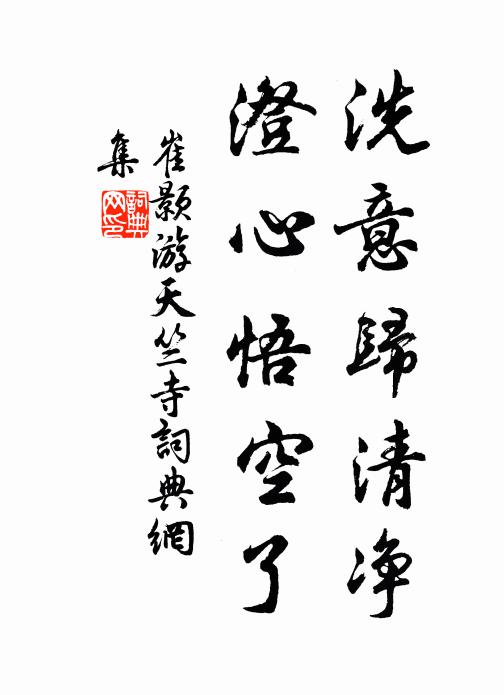 洗意歸清净
澄心悟空了
崔颢游天竺寺詞典網
集
詞典
网印